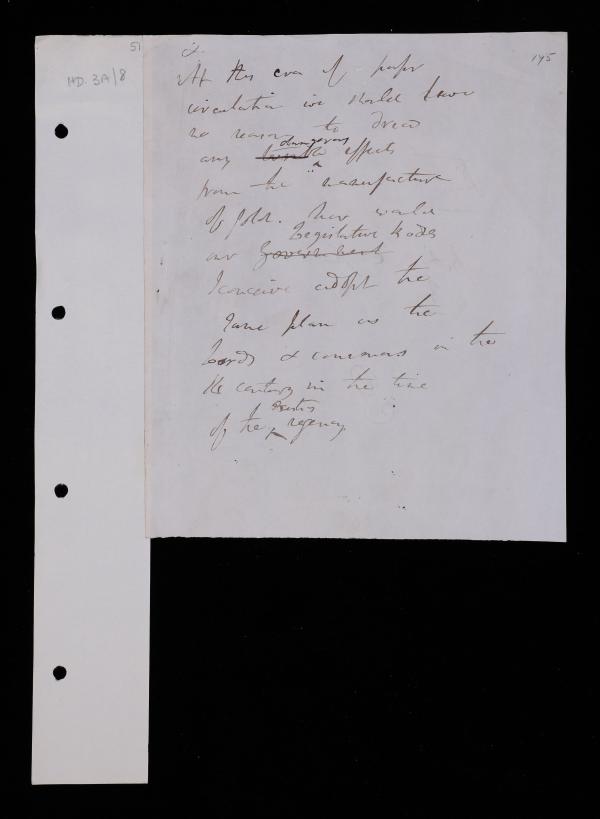 51
HD. 3A/8
195
At this era of paper
circulation we should have
no reason to dread
dangerous
any terrible effects
from the manufacture
of gold. how would
Legislative bodies
our Government
I conceive adopt the
same plan as the
Lords & commons in the
16 century in the time
of the regency